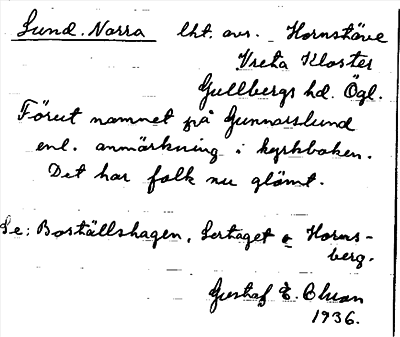 Lund. Norra lht. avs. - Hornstäve
Vreta Kloster
Gullbergs hd. Ögl.
Förut namnet på Gunnarslund
enl. anmärkning i kyrkboken.
Det har folk nu glömt.
Se: Boställshagen, Sertaget o Horns-
berg.
Gustaf E. Ohman
1936.